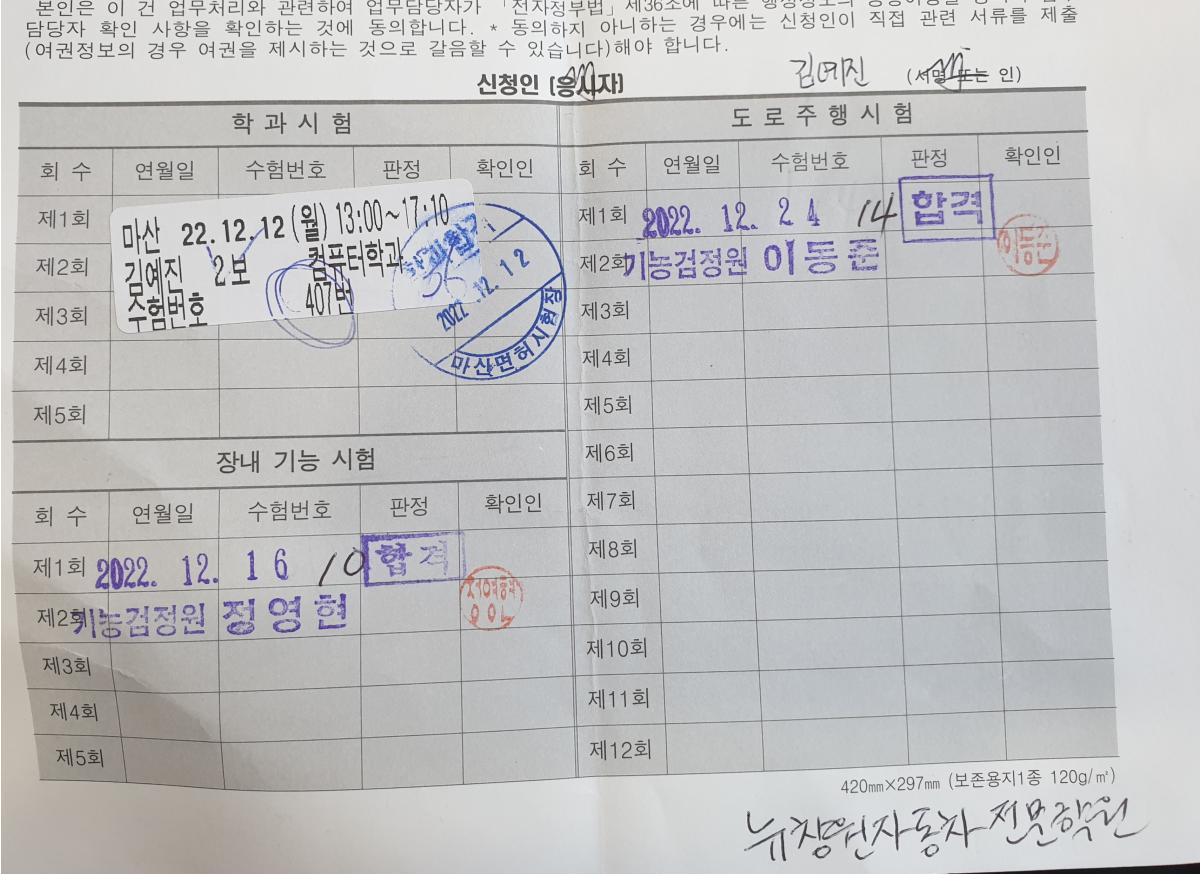 본인은 이 건 업무처리와 관련하여 업무담당자가 「전자정부법」제36조에 따른 행정정보의
담당자 확인 사항을 확인하는 것에 동의합니다. * 동의하지 아니하는 경우에는 신청인이 직접 관련 서류를 제출
(여권정보의 경우 여권을 제시하는 것으로 갈음할 수 있습니다)해야 합니다.
신청인 (응시자) 김예진 (서명 또는 인)
학 과 시 험
회 수 연월일 수험번호 판정 확인인
제1회
제2회
제3회
제4회
제5회
마산 22.12.12 (월) 13:00~17:10
김예진 2보 컴퓨터학과
수험번호 407번
2022. 12. 12
마산면허시험장
장내 기능 시험
회 수 연월일 수험번호 판정 확인인
제1회 2022. 12. 16 10 합격
제2회 기능검정원 정영현
제3회
제4회
제5회
도 로 주 행 시 험
회 수 연월일 수험번호 판정 확인인
제1회 2022. 12. 24 14 합격
제2회 기능검정원 이동준 이동준
제3회
제4회
제5회
제6회
제7회
제8회
제9회
제10회
제11회
제12회
420㎜×297㎜ (보존용지1종 120g/㎡)
뉴창원자동차전문학원